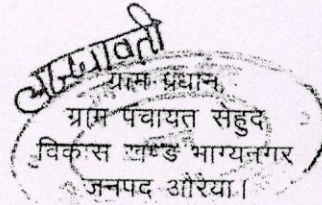 ग्राम प्रधान
ग्राम पंचायत सेहुद
विकास खण्ड भाग्यनगर
जनपद औरैया।